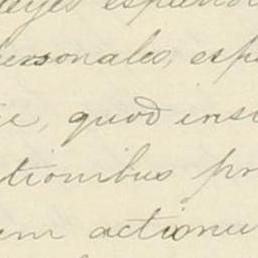 leyes español
personales, esp
e, quod inst
tionibus pr
em actionu